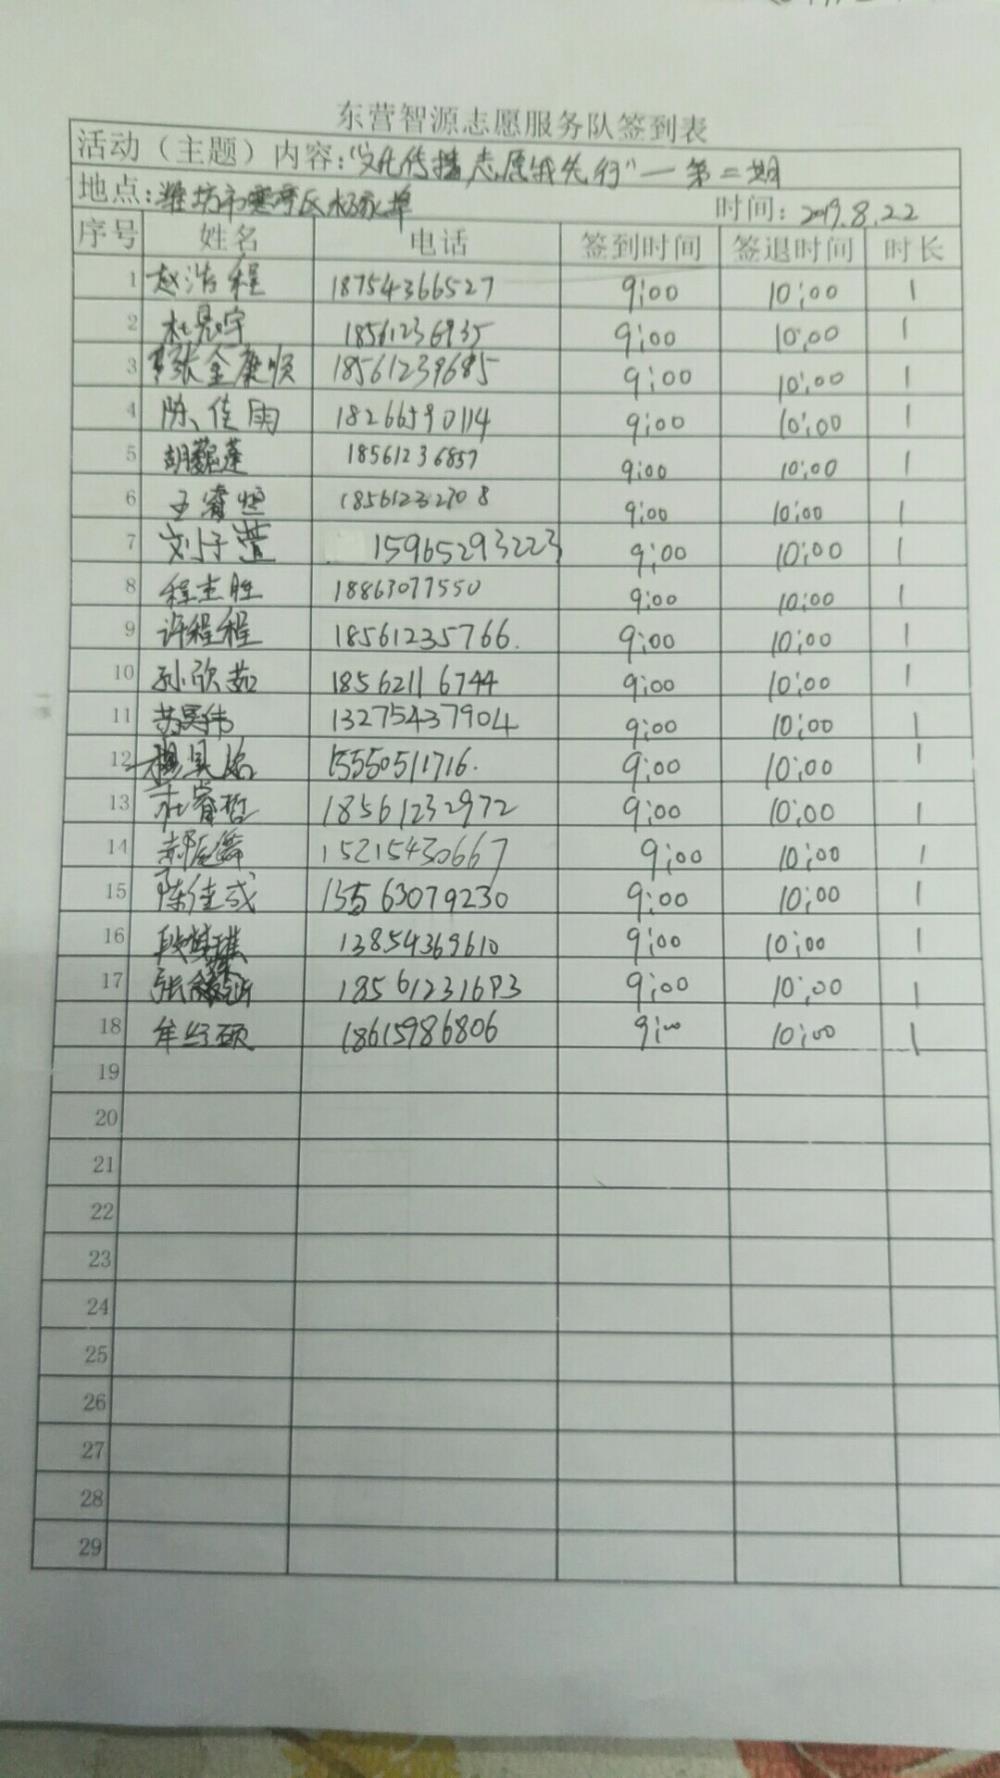 东营智源志愿服务队签到表
活动（主题）内容：“文化传播，志愿我先行”一第二期
地点：潍坊市寒亭区杨家埠 时间：2019.8.22
序号 姓名 电话 签到时间 签退时间 时长
1 赵浩程 18754366527 9:00 10:00 1
2 杜晃宇 18561236935 9:00 10:00 1
3 张金庚顺 18561239685 9:00 10:00 1
4 陈佳雨 18266590114 9:00 10:00 1
5 18561236857 9:00 10:00 1
6 王睿恒 18561232708 9:00 10:00 1
7 刘子萱 15965293223 9:00 10:00 1
8 程志胜 18863077550 9:00 10:00 1
9 许程程 18561235766. 9:00 10:00 1
10 孙欣茹 18562116744 9:00 10:00 1
11 苏昊伟 13275437904 9:00 10:00 1
12 15550511716. 9:00 10:00 1
13 杜睿哲 18561232972 9:00 10:00 1
14 15215430667 9:00 10:00 1
15 陈佳彧 15563079230 9:00 10:00 1
16 13854369610 9:00 10:00 1
17 9:00 10:00 1
18 牟经硕 18615986806 9:00 10:00 1
19
20
21
22
23
24
25
26
27
28
29